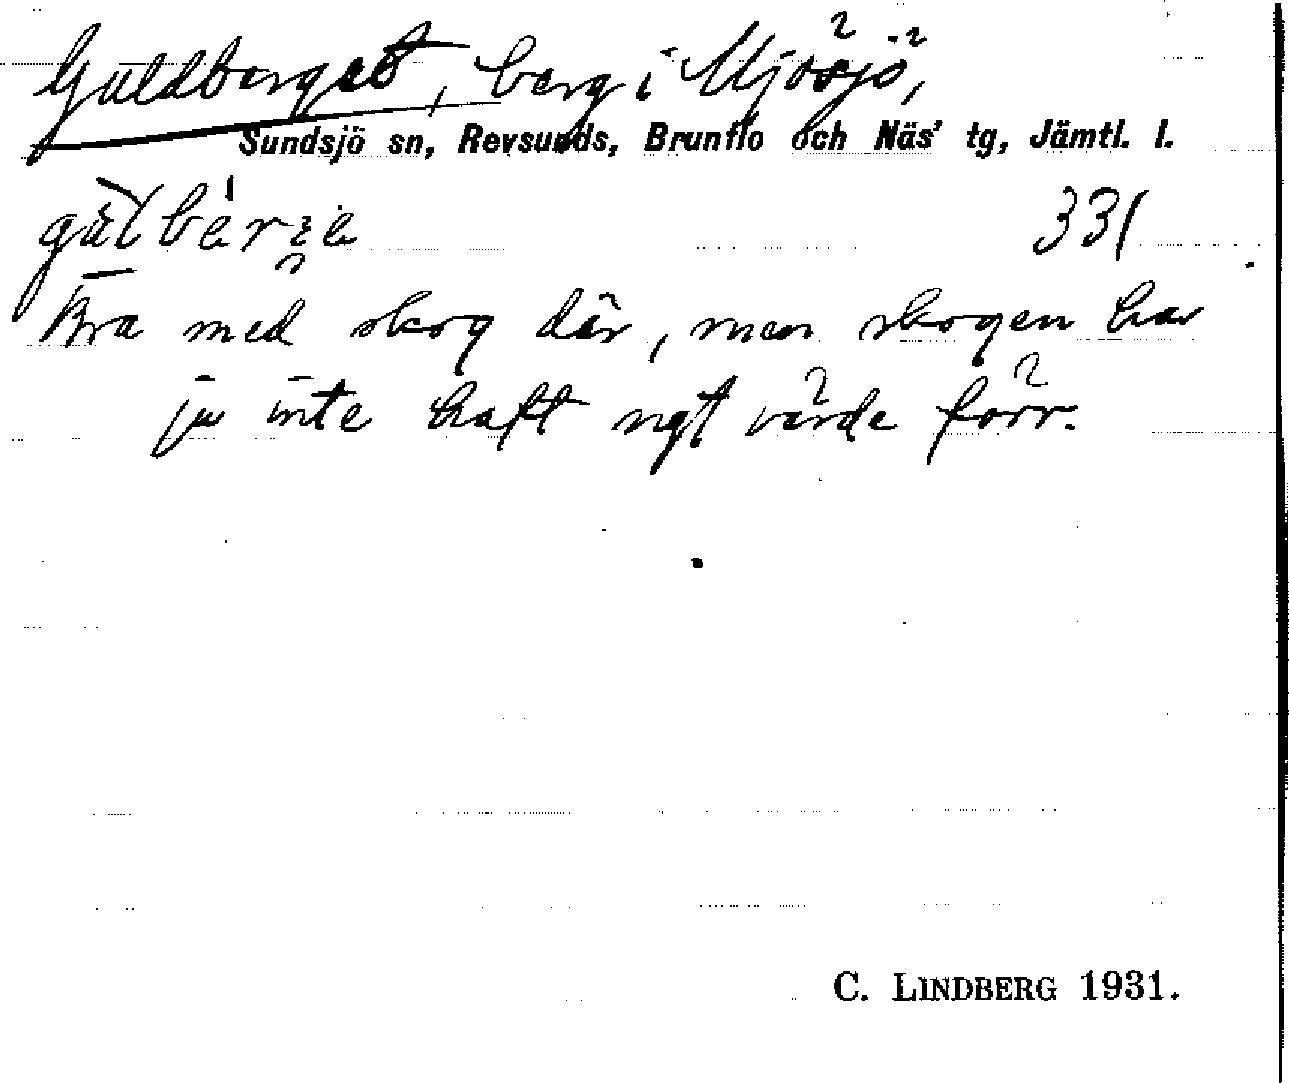 Guldberget, berg i Mjösjö,
Sundsjö sn, Revsunds, Brunflo och Näs' tg, Jämtl. l.
331
Bra med skog där, men skogen har
ju inte haft ngt värde förr.
C. LINDBERG 1931.